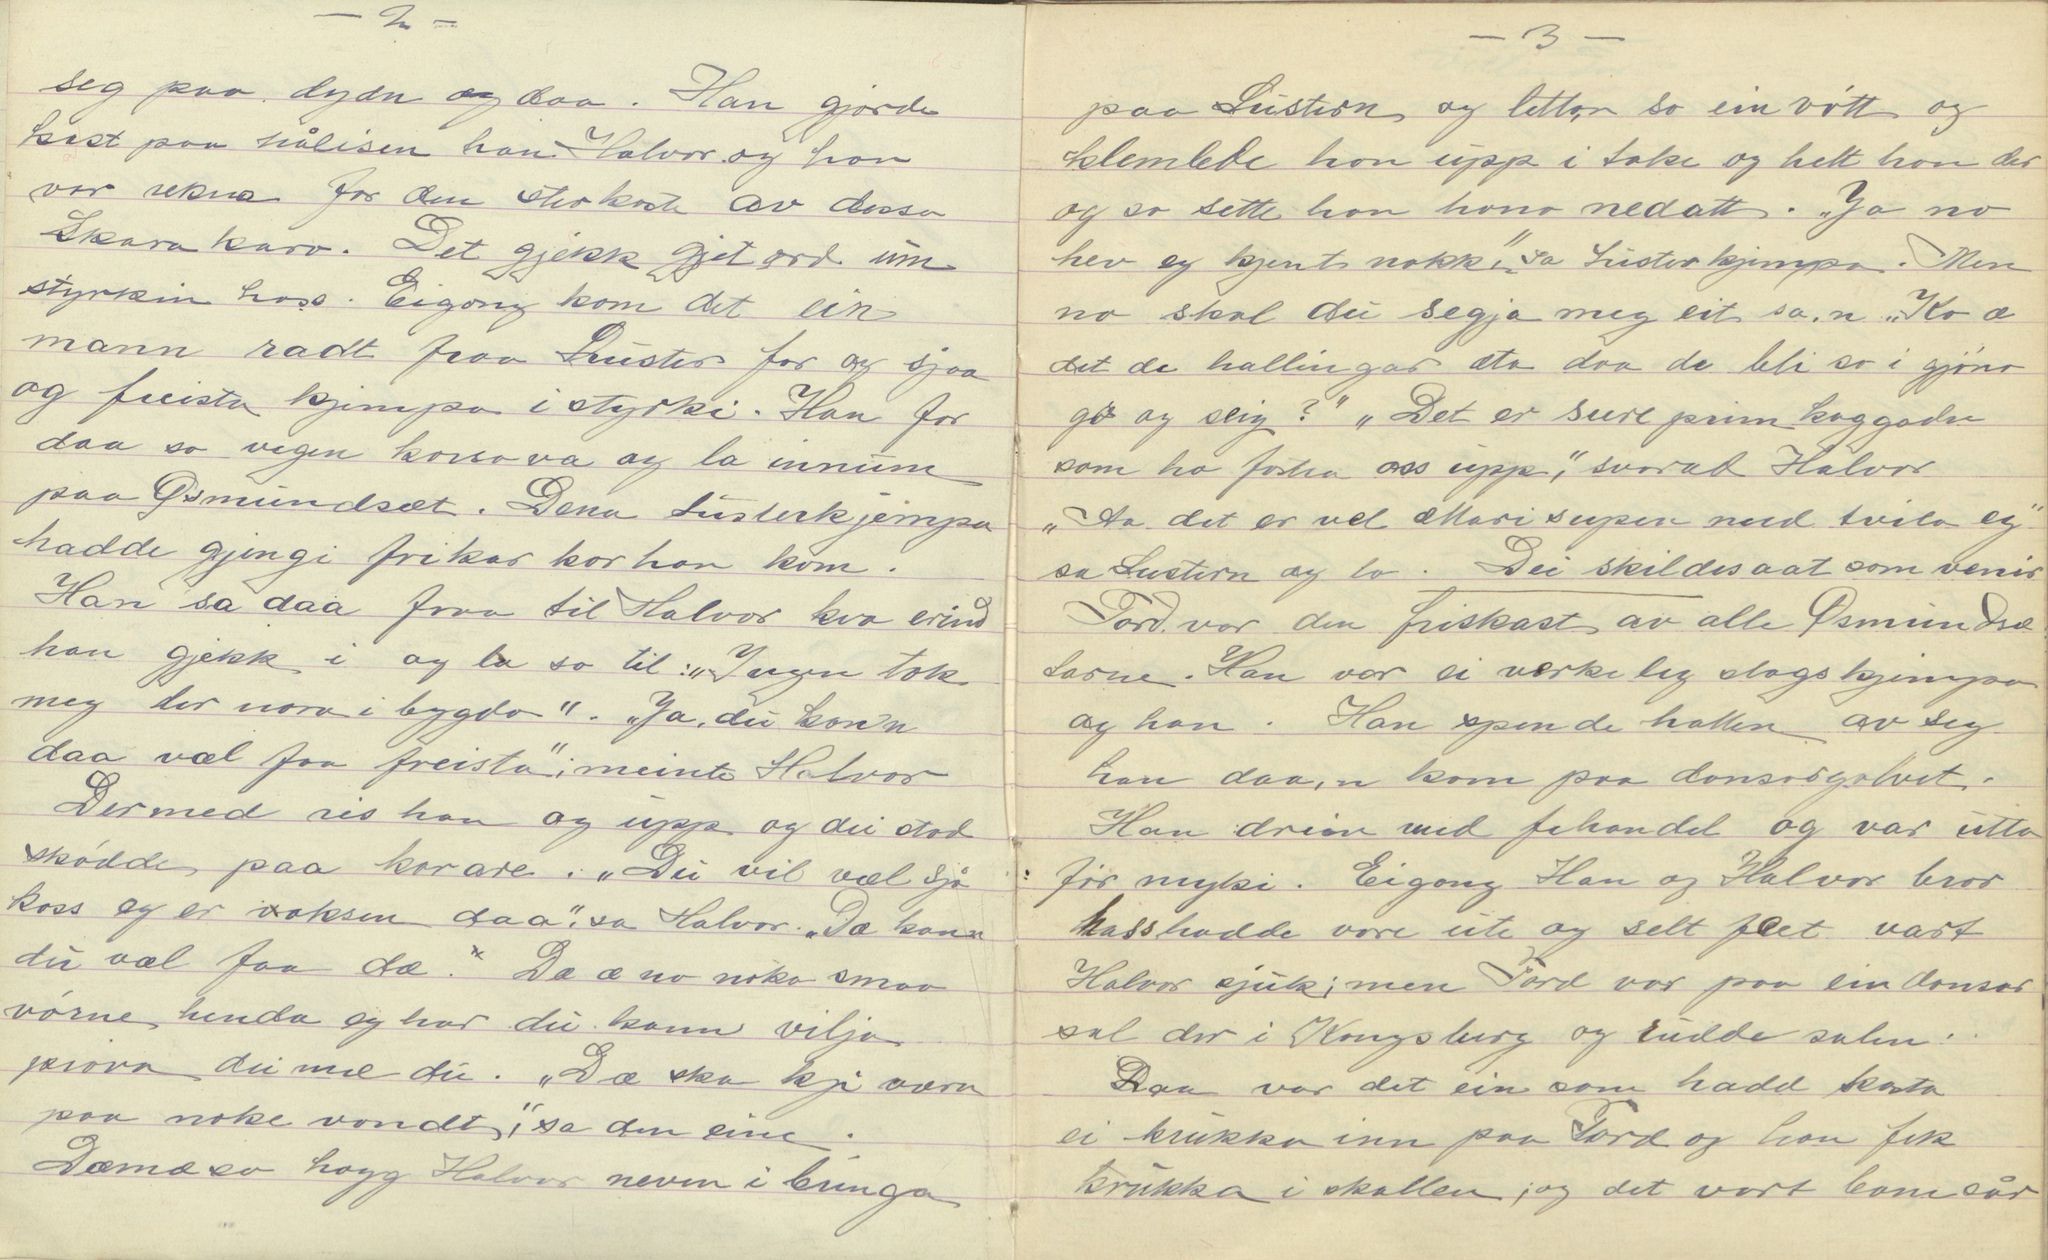 - 2 -
seg paa dydn og daa. Han gjorde
kast paa hålisen han Halvor og han
var rekna for den sterkaste av dessa
Skarakara. Det gjekk gjet ord um
styrkin hass. Eigong kom det ein
mann radt fraa Luster for og sjaa
og freista kjempa i styrki. Han for
daa so vegen korso va og la innum
paa Øsmundset. Dena Lusterkjempa
hadde gjengi frikar kor han kom.
Han sa daa fraa til Halvor kva erind
han gjekk i og la so til: "Ingen tok
meg der nora i bygda". "Ja, du kan'n
daa væl faa freista", meinte Halvor
Dermed reis han og upp og dei stod
skódde paa karare. "Du vil væl sjå
koss eg er voksen daa", sa Halvor. "Dæ kann
du væl faa dæ." Dæ æ no noko smaa
vórne henda eg har du kann vilja
prøva dei me du. "Dæ ska kji væra
paa noke vondt", sa den eine.
Dæmæ so hogg Halvor neven i bringa
- 3 -
paa Lustern og letta'n so ein vótt og
klemlede han upp i take og helt han der
og so sette han hono nedatt. "Ja no
hev eg kjent nokk", sa Lusterkjempa. Men
no skal du segja meg eit sa'n "Ko æ
det de hallingar eta daa de bli so i gjóno
go og seig?" "Det er sure prim kaggadn
som ha fostra oss upp", svorad Halvor
"Aa det er vel Marisupen med tvila eg"
sa Lustern og lo. Dei skildesaat som venir
Tord var den friskast av alle Øsmundsæ
tarne. Han var ei verkeleg slagskjempa
og han. Han spende hatten av seg
han daa'n kom paa dansargolvet.
Han dreiv med fehandel og var utta
fór myki. Eigong Han og Halvor bror
hass hadde vore ute og selt feet vart
Halvor sjuk; men Tord var paa ein dansar
sal der i Kongsberg og rudde salen.
Daa var det ein som hadd kasta
ei krukka inn paa Tord og han fek
krukka i skallen, og det vart bane sår